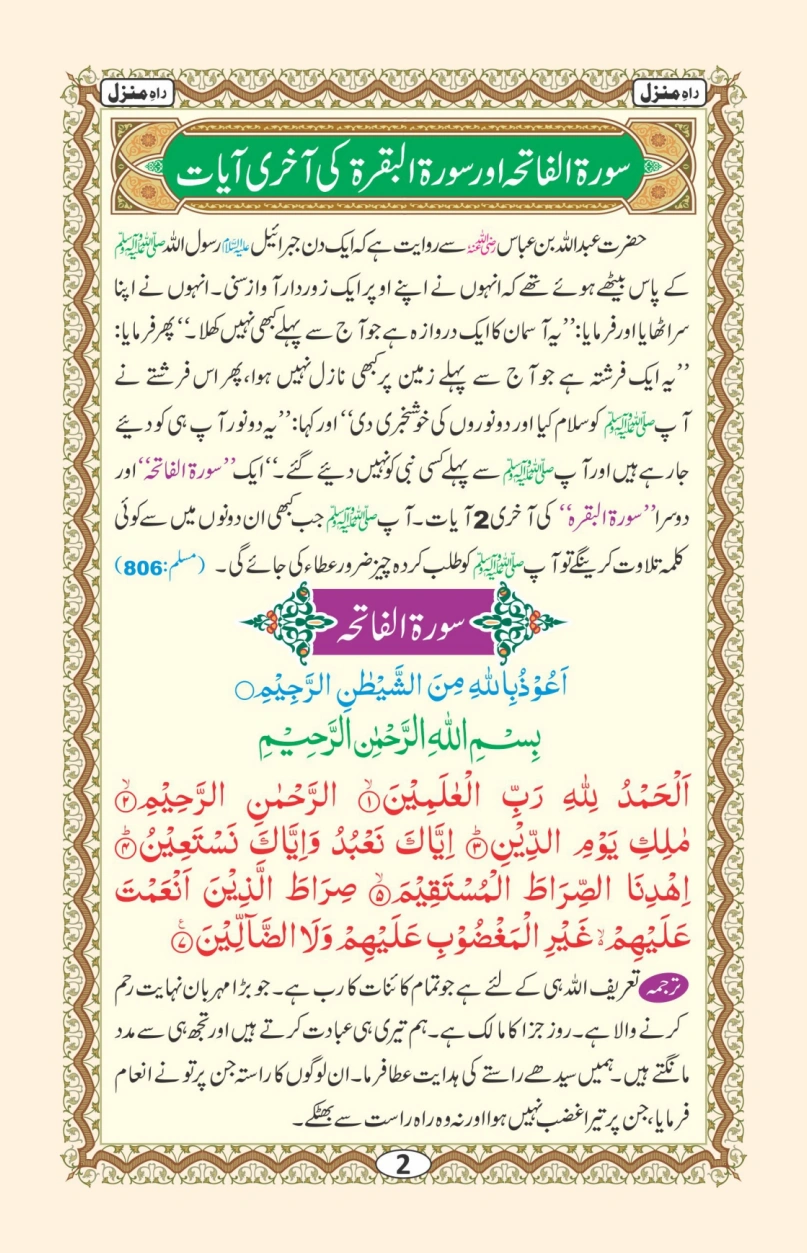 راہِ منزل
راہِ منزل
سورۃ الفاتحہ اور سورۃ البقرۃ کی آخری آیات
حضرت عبداللہ بن عباس رضی اللہ عنہ سے روایت ہے کہ ایک دن جبرائیل علیہ السلام رسول اللہ صلی اللہ علیہ وآلہ وسلم
کے پاس بیٹھے ہوئے تھے کہ انہوں نے اپنے اوپر ایک زوردار آواز سنی۔ انہوں نے اپنا
سر اٹھایا اور فرمایا: ’’یہ آسمان کا ایک دروازہ ہے جو آج سے پہلے کبھی نہیں کھلا۔‘‘ پھر فرمایا:
’’یہ ایک فرشتہ ہے جو آج سے پہلے زمین پر کبھی نازل نہیں ہوا، پھر اس فرشتے نے
آپ صلی اللہ علیہ وآلہ وسلم کو سلام کیا اور دو نوروں کی خوشخبری دی‘‘ اور کہا: ’’یہ دو نور آپ ہی کو دئیے
جارہے ہیں اور آپ صلی اللہ علیہ وآلہ وسلم سے پہلے کسی نبی کو نہیں دئیے گئے۔‘‘ ایک ’’سورۃ الفاتحہ‘‘ اور
دوسرا ’’سورۃ البقرہ‘‘ کی آخری 2 آیات۔ آپ صلی اللہ علیہ وآلہ وسلم جب کبھی ان دونوں میں سے کوئی
کلمہ تلاوت کرینگے تو آپ صلی اللہ علیہ وآلہ وسلم کو طلب کردہ چیز ضرور عطاء کی جائے گی۔ (مسلم:806)
سورۃ الفاتحہ
اَعُوْذُ بِاللّٰهِ مِنَ الشَّیْطٰنِ الرَّجِیْمِ○
بِسْمِ اللّٰهِ الرَّحْمٰنِ الرَّحِیْمِ
اَلْحَمْدُ لِلّٰهِ رَبِّ الْعٰلَمِیْنَ ۙ﴿۱﴾ الرَّحْمٰنِ الرَّحِیْمِ ۙ﴿۲﴾
مٰلِكِ یَوْمِ الدِّیْنِ ؕ﴿۳﴾ اِیَّاكَ نَعْبُدُ وَاِیَّاكَ نَسْتَعِیْنُ ؕ﴿۴﴾
اِهْدِنَا الصِّرَاطَ الْمُسْتَقِیْمَ ۙ﴿۵﴾ صِرَاطَ الَّذِیْنَ اَنْعَمْتَ
عَلَیْهِمْ ۙ۬ غَیْرِ الْمَغْضُوْبِ عَلَیْهِمْ وَلَا الضَّآلِّیْنَ ﴿۷﴾
ترجمہ تعریف اللہ ہی کے لئے ہے جو تمام کائنات کا رب ہے۔ جو بڑا مہربان نہایت رحم
کرنے والا ہے۔ روز جزا کا مالک ہے۔ ہم تیری ہی عبادت کرتے ہیں اور تجھ ہی سے مدد
مانگتے ہیں۔ ہمیں سیدھے راستے کی ہدایت عطا فرما۔ ان لوگوں کا راستہ جن پر تو نے انعام
فرمایا، جن پر تیرا غضب نہیں ہوا اور نہ وہ راہ راست سے بھٹکے۔
2